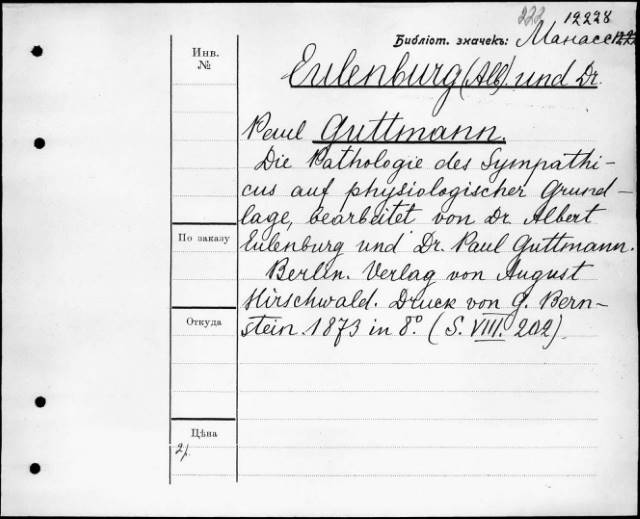 222 12228
Библіот. значекъ: Манасс
Инв.
№
Eulenburg (Alb) und Dr.
Paul Guttmann.
Die Pathologie des Sympathi-
cus auf physiologischer Grund-
lage, bearbeitet von Dr. Albert
По заказу
Eulenburg und Dr. Paul Guttmann.
Berlin. Verlag von August
Hirschwald. Druck von G. Bern-
Откуда
stein. 1873 in 8º. (S. VIII. 202).
Цѣна